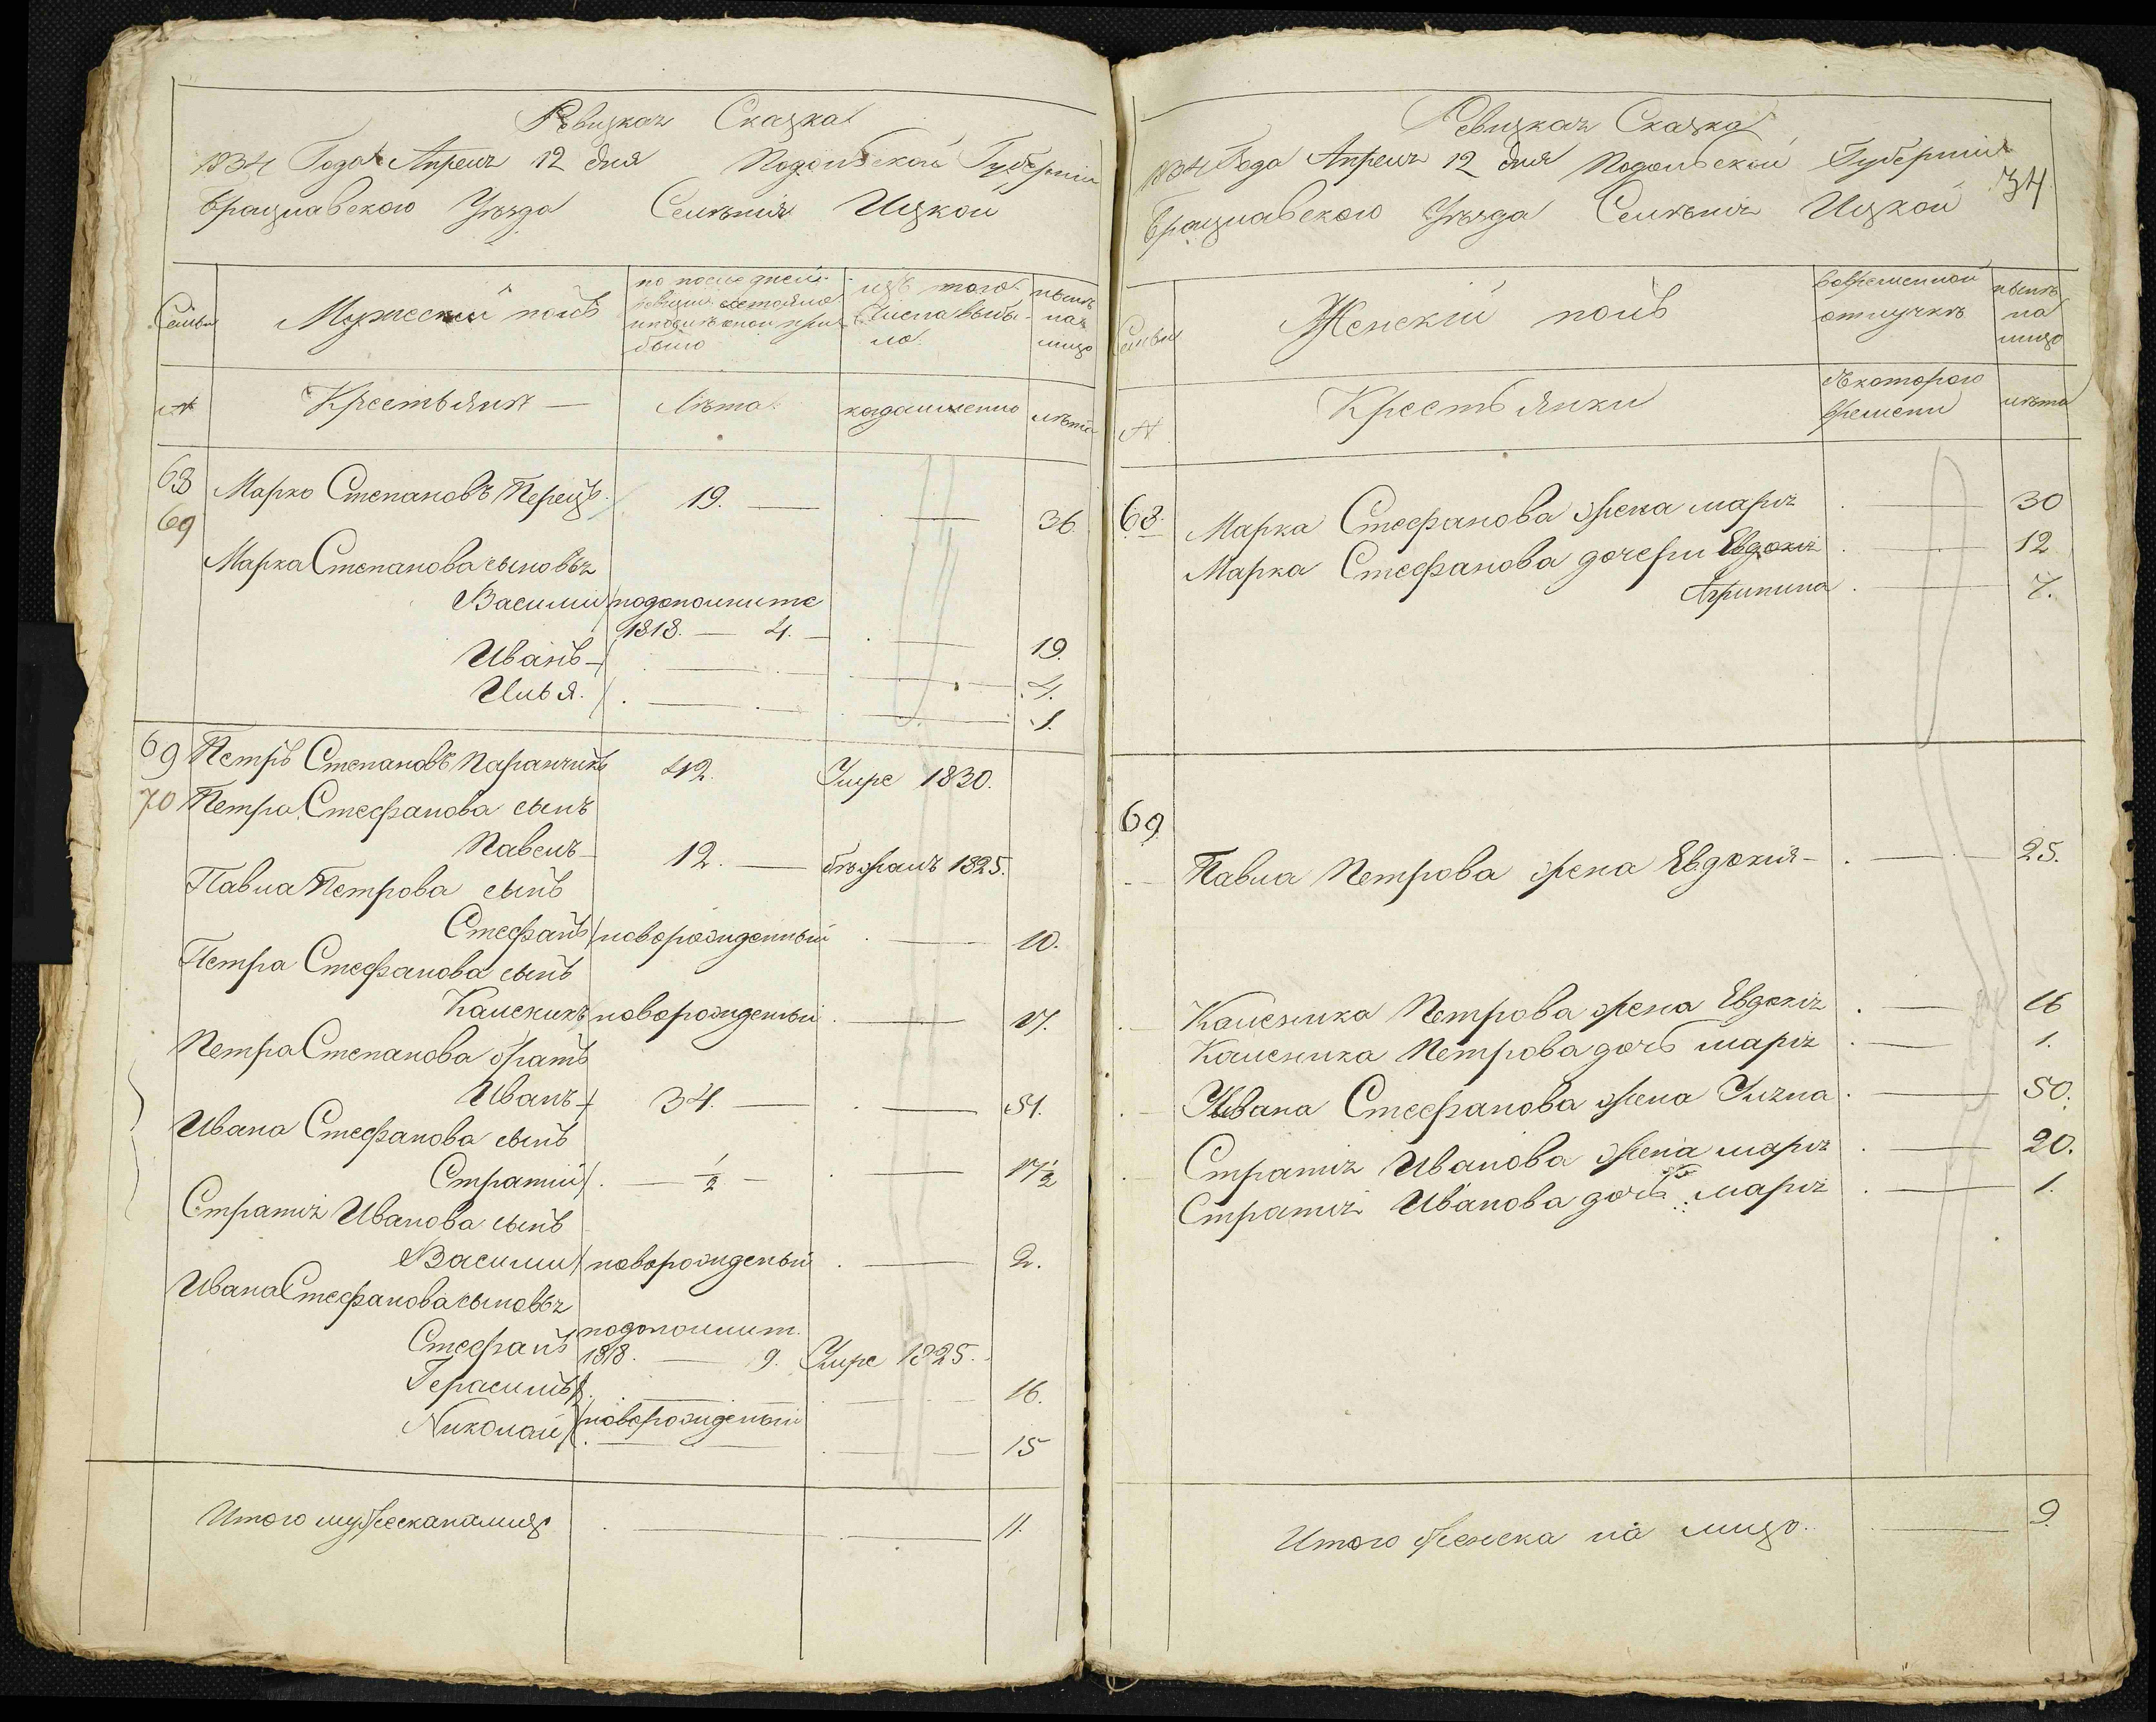 Ревизкая Сказка
1834 Года Апреля 12 дня Подольской Губернии
Брацлавского Уѣзда Селѣния Ицкои
Семьи
Мужеский полъ
по последней
ревизии состояло
и после оной при
было
изъ того
Числа выбы-
ло.
нынѣ
на
лицо
№
Крестьяня —
Лѣта
когда именно
лѣта
68 Марко Степановъ Перецъ 19. — — 36.
69
Марка Степанова сыновья
Василий подополните
1818. — 4. — — 19.
Иванъ — — — 4.
Илья. — — 1.
69 Петръ Степановъ Паранчикъ 42. Умре 1830.
70 Петра Стефанова сынъ
Павелъ — 12. — бѣжалъ 1825.
Павла Петрова сынъ
Стефанъ новорожденный — 10.
Петра Стефанова сынъ
Каленикъ новорожденый — 17.
Петра Степанова братъ
Иванъ 34. — — 51.
Ивана Стефанова сынъ
Стратий — 1/2 — — 17 1/2
Стратия Иванова сынъ
Василий новорожденый — 2.
Ивана Стефанова сыновья
Стефанъ подополнит.
1818. — 9. Умре 1825.
Герасимъ — — 16.
Николай новорожденый — 15
Итого мужеска на лицо — — 11.
Ревизкая Сказка
1834 Года Апреля 12 дня Подольской Губернии
34
Брацлавского Уѣзда Селѣния Ицкой
Семьи
Женский полъ
вовременной
отлучкѣ
нынѣ
на
лицо
№
Крестьянки
съ котораго
времени
лѣта
68. Марка Стефанова жена мария — 30
Марка Стефанова дочери Евдокия — 12
Агрипина — 7.
69
Павла Петрова жена Евдокия — — 25.
Каленика Петрова жена Евдокия — 16
Каленика Петрова дочь мария — 1.
Ивана Стефанова жена Улзна — 50.
Стратия Иванова жена мария — 20.
Стратия Иванова дочь мария — 1.
Итого женска на лицо — 9.